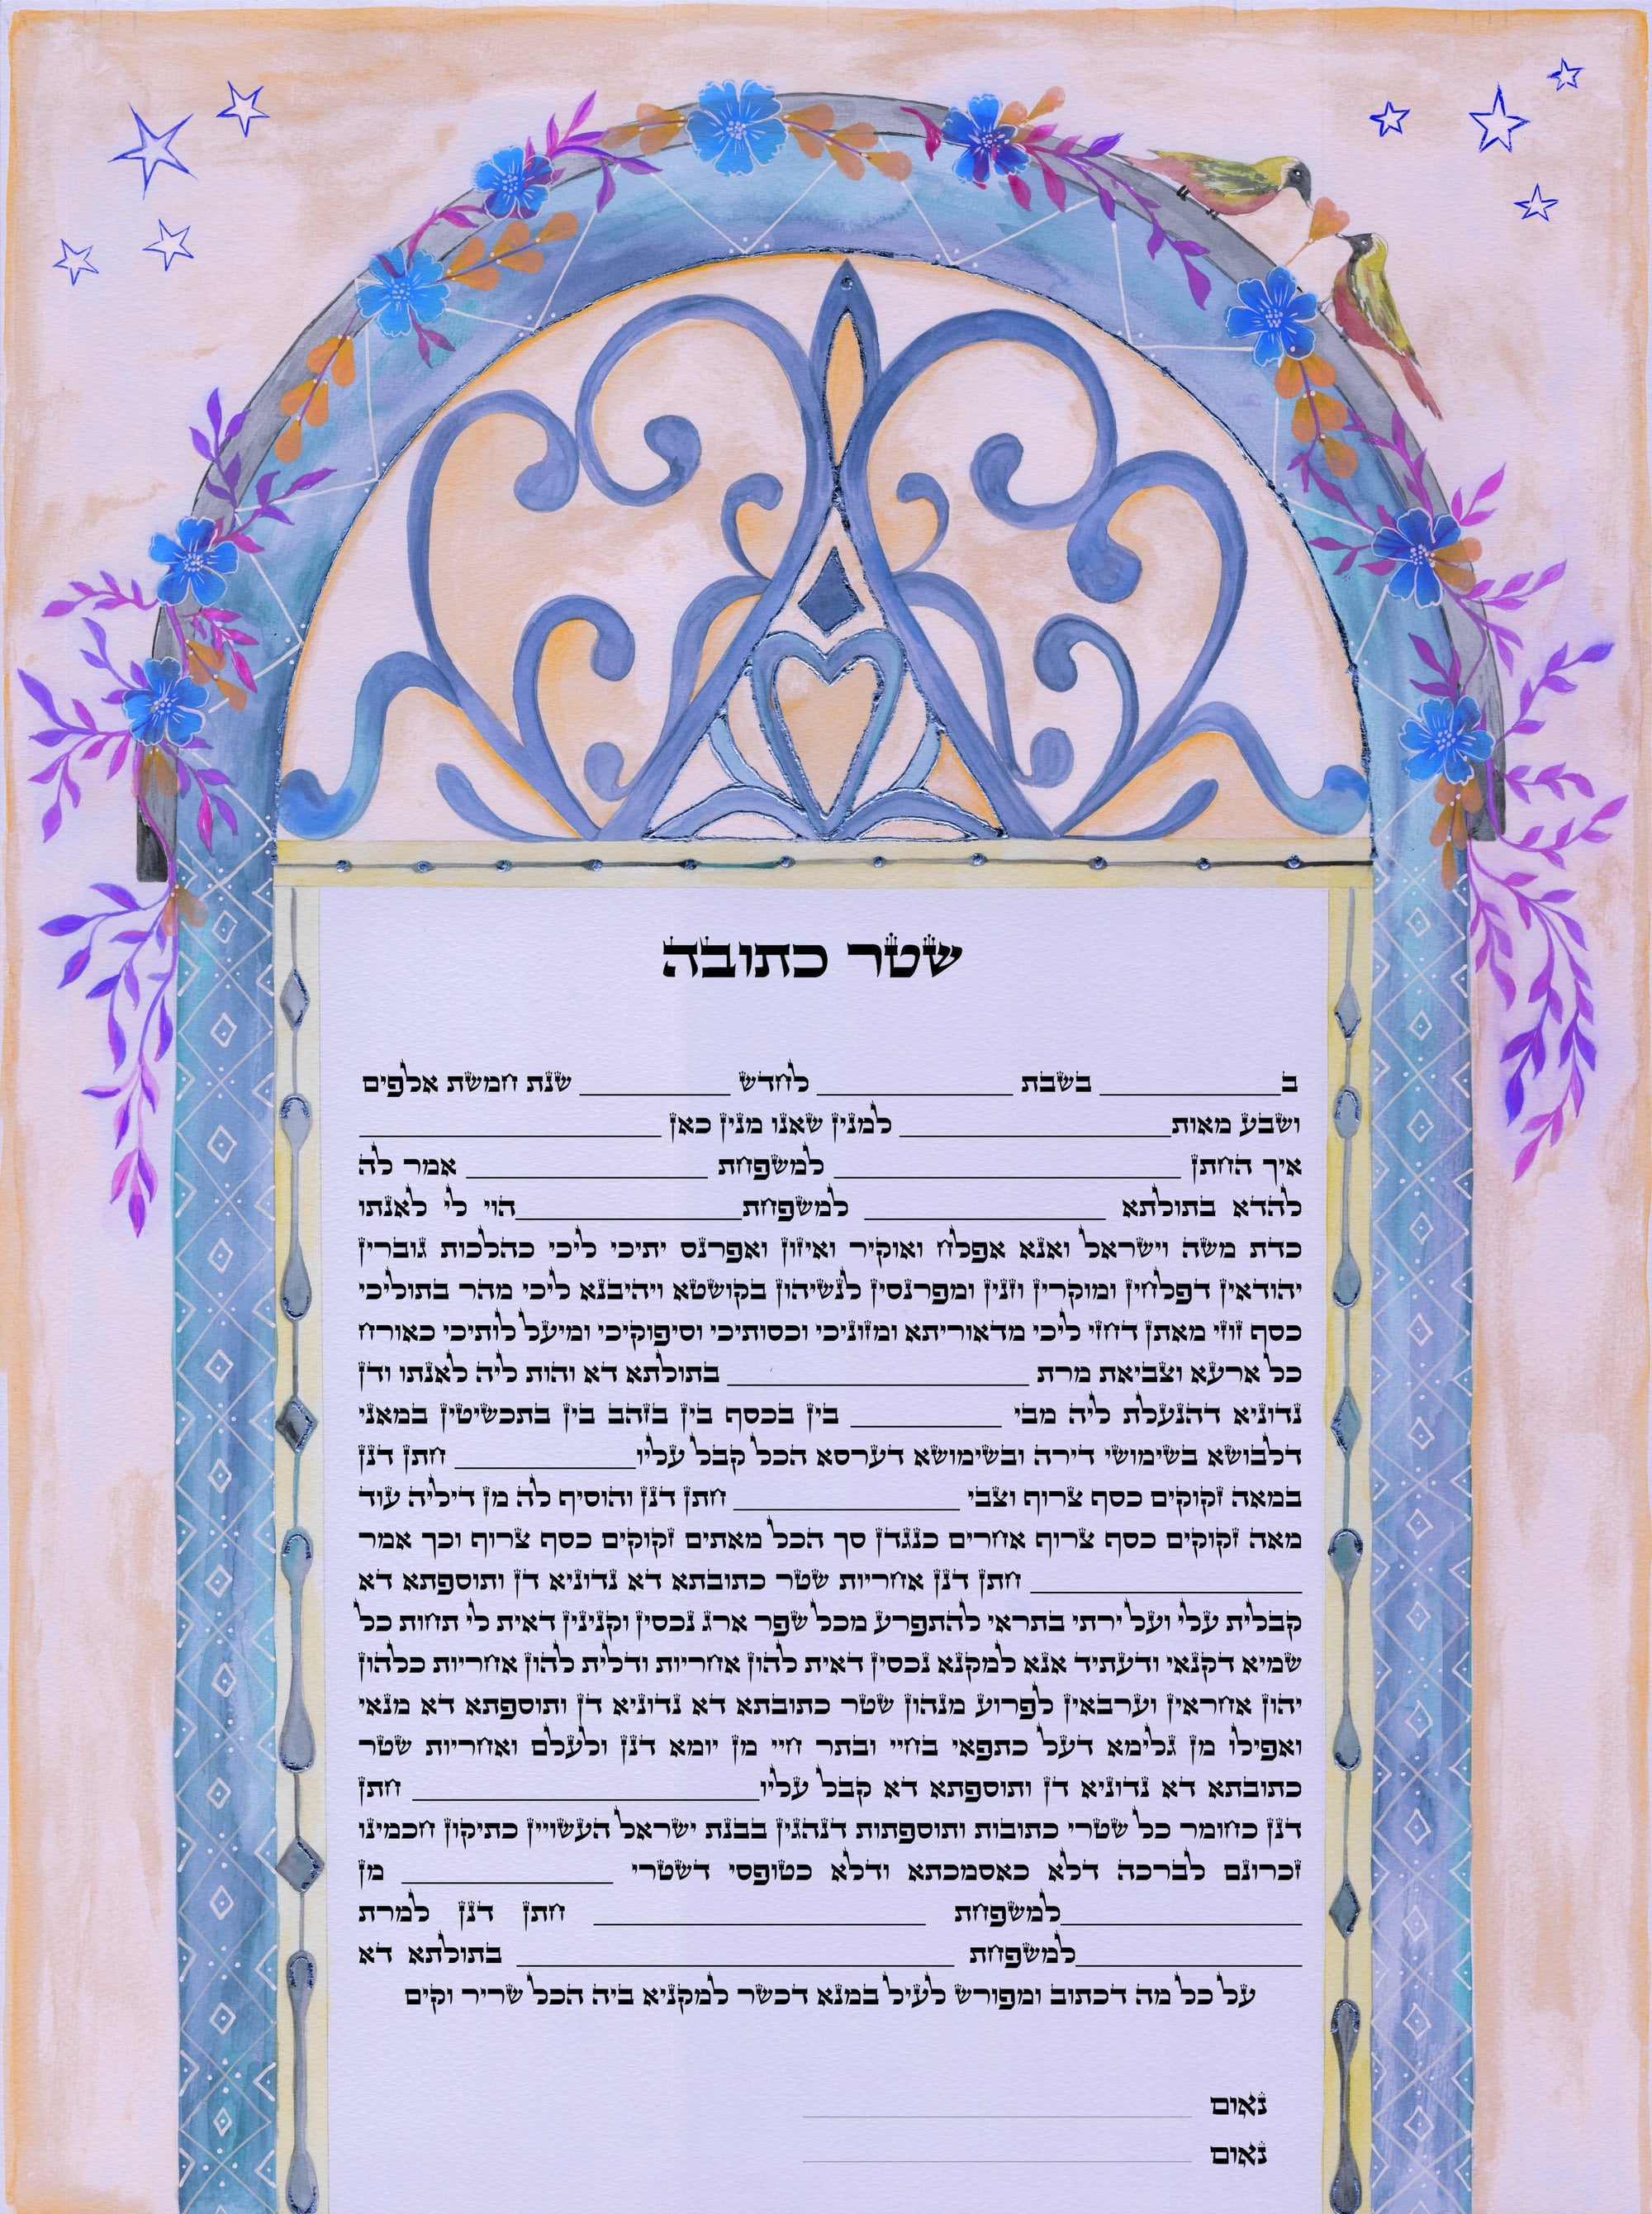 שטר כתובה
ב____________ בשבת _____________ לחדש __________ שנת חמשת אלפים
ושבע מאות__________________ למנין שאנו מנין כאן ____________________
איך החתן _______________________ למשפחת ________________ אמר לה
להדא בתולתא ________________ למשפחת_______________הוי לי לאנתו
כדת משה וישראל ואנא אפלח ואוקיר ואיזון ואפרנס יתיכי ליכי כהלכות גוברין
יהודאין דפלחין ומוקרין וזנין ומפרנסין לנשיהון בקושטא ויהיבנא ליכי מהר בתוליכי
כסף זוזי מאתן דחזי ליכי מדאוריתא ומזוניכי וכסותיכי וסיפוקיכי ומיעל לותיכי כאורח
כל ארעא וצביאת מרת ____________________ בתולתא דא והות ליה לאנתו ודן
נדוניא דהנעלת ליה מבי __________ בין בכסף בין בזהב בין בתכשיטין במאני
דלבושא בשימושי דירה ובשימושא דערסא הכל קבל עליו____________ חתן דנן
במאה זקוקים כסף צרוף וצבי _______________ חתן דנן והוסיף לה מן דיליה עוד
מאה זקוקים כסף צרוף אחרים כנגדן סך הכל מאתים זקוקים כסף צרוף וכך אמר
__________________ חתן דנן אחריות שטר כתובתא דא נדוניא דן ותוספתא דא
קבלית עלי ועל ירתי בתראי להתפרע מכל שפר ארג נכסין וקנינין דאית לי תחות כל
שמיא דקנאי ודעתיד אנא למקנא נכסין דאית להון אחריות ודלית להון אחריות כלהון
יהון אחראין וערבאין לפרוע מנהון שטר כתובתא דא נדוניא דן ותוספתא דא מנאי
ואפילו מן גלימא דעל כתפאי בחיי ובתר חיי מן יומא דנן ולעלם ואחריות שטר
כתובתא דא נדוניא דן ותוספתא דא קבל עליו_______________________ חתן
דנן כחומר כל שטרי כתובות ותוספתות דנהגין בבנת ישראל העשויין כתיקון חכמינו
זכרונם לברכה דלא כאסמכתא ודלא כטופסי דשטרי ______________ מן
________________למשפחת ______________________ חתן דנן למרת
_______________למשפחת _____________________________ בתולתא דא
על כל מה דכתוב ומפורש לעיל במנא דכשר למקניא ביה הכל שריר וקים
נאום __________________________
נאום __________________________